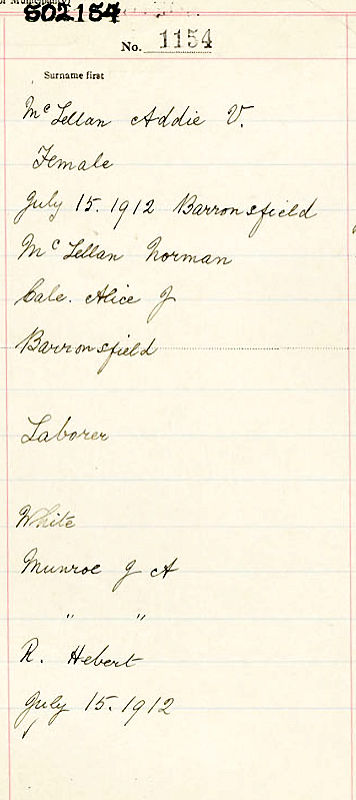 S02154
No. 1154
Surname first
McLellan Addie V.
Female
July 15. 1912 Barronsfield
McLellan Norman
Cale. Alice J
Barronsfield
Laborer
White
Munroe J A
" "
R. Hebert
July 15. 1912